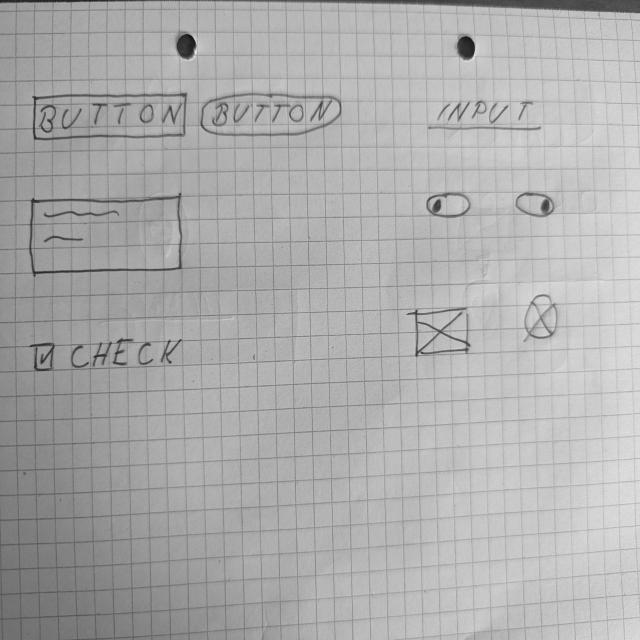 BUTTON BUTTON INPUT
CHECK